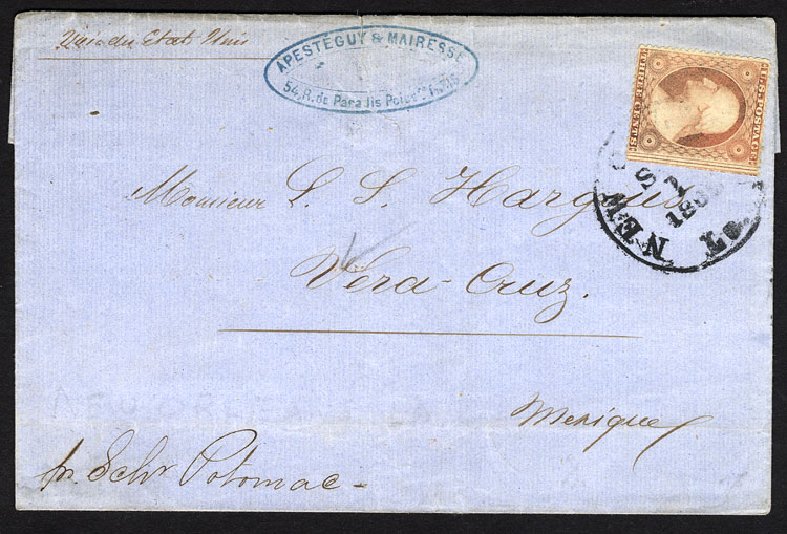 Voie du Etat Unis
APESTÉGUY & MAIRESSE
54, R. de Paradis Poiss re PARIS
U.S. POSTAGE
THREE CENTS
NEW
1860
Monsieur L. S. Hargous
Vera-Cruz.
Mexique
pr. Schr Potomac-